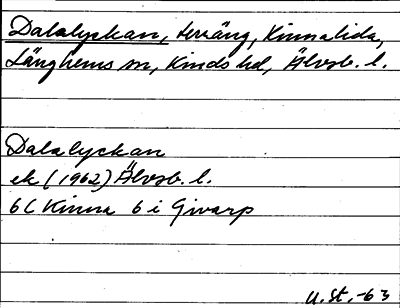 Dalalyckan, terräng, Kinnalida,
Länghems sn, Kinds hd, Älvsb. l.
Dalalyckan
ek (1962) Älvsb. l.
6C Kinna 6 i Givarp
U. St. -63